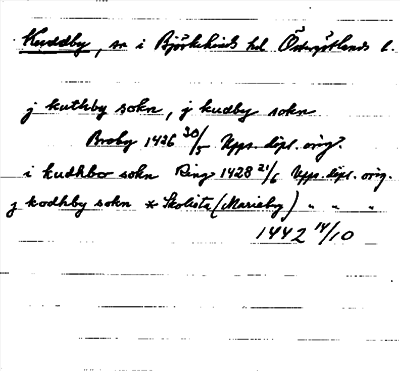 Kuddby, sn i Björkekinds hd Östergötlands l.
j kuthby sokn, j kudby sokn
Broby 1436 30/5 Upps. dipl. orig.
i kudhbo sokn Ring 1428 21/6 Upps. dipl. orig.
j kodhby sokn * Skolista (Marieby) " " "
1442 14/10